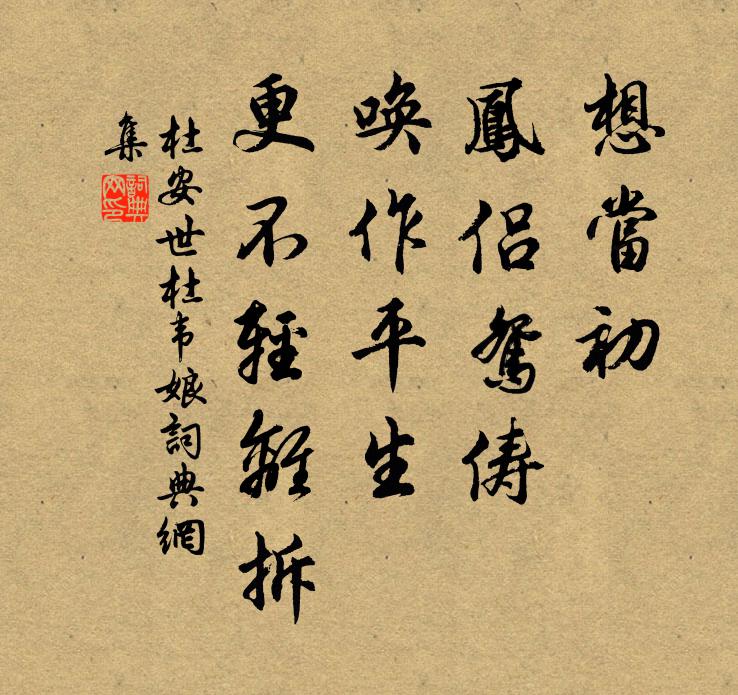 想當初
鳳侶鴛儔
喚作平生
更不輕離拆
杜安世杜韦娘詞典網
集
詞典
网印